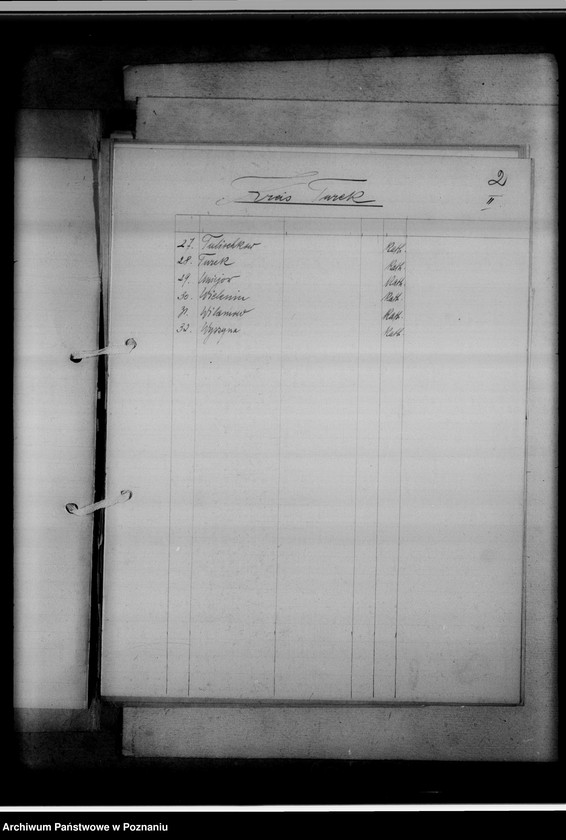 2
II
Kreis Turek
27. Tulischkow Kath.
28. Turek Kath.
29. Uniejow Kath.
30. Wielenin Kath.
31. Wilamow Kath.
32. Wyszyna Kath.
Archiwum Państwowe w Poznaniu